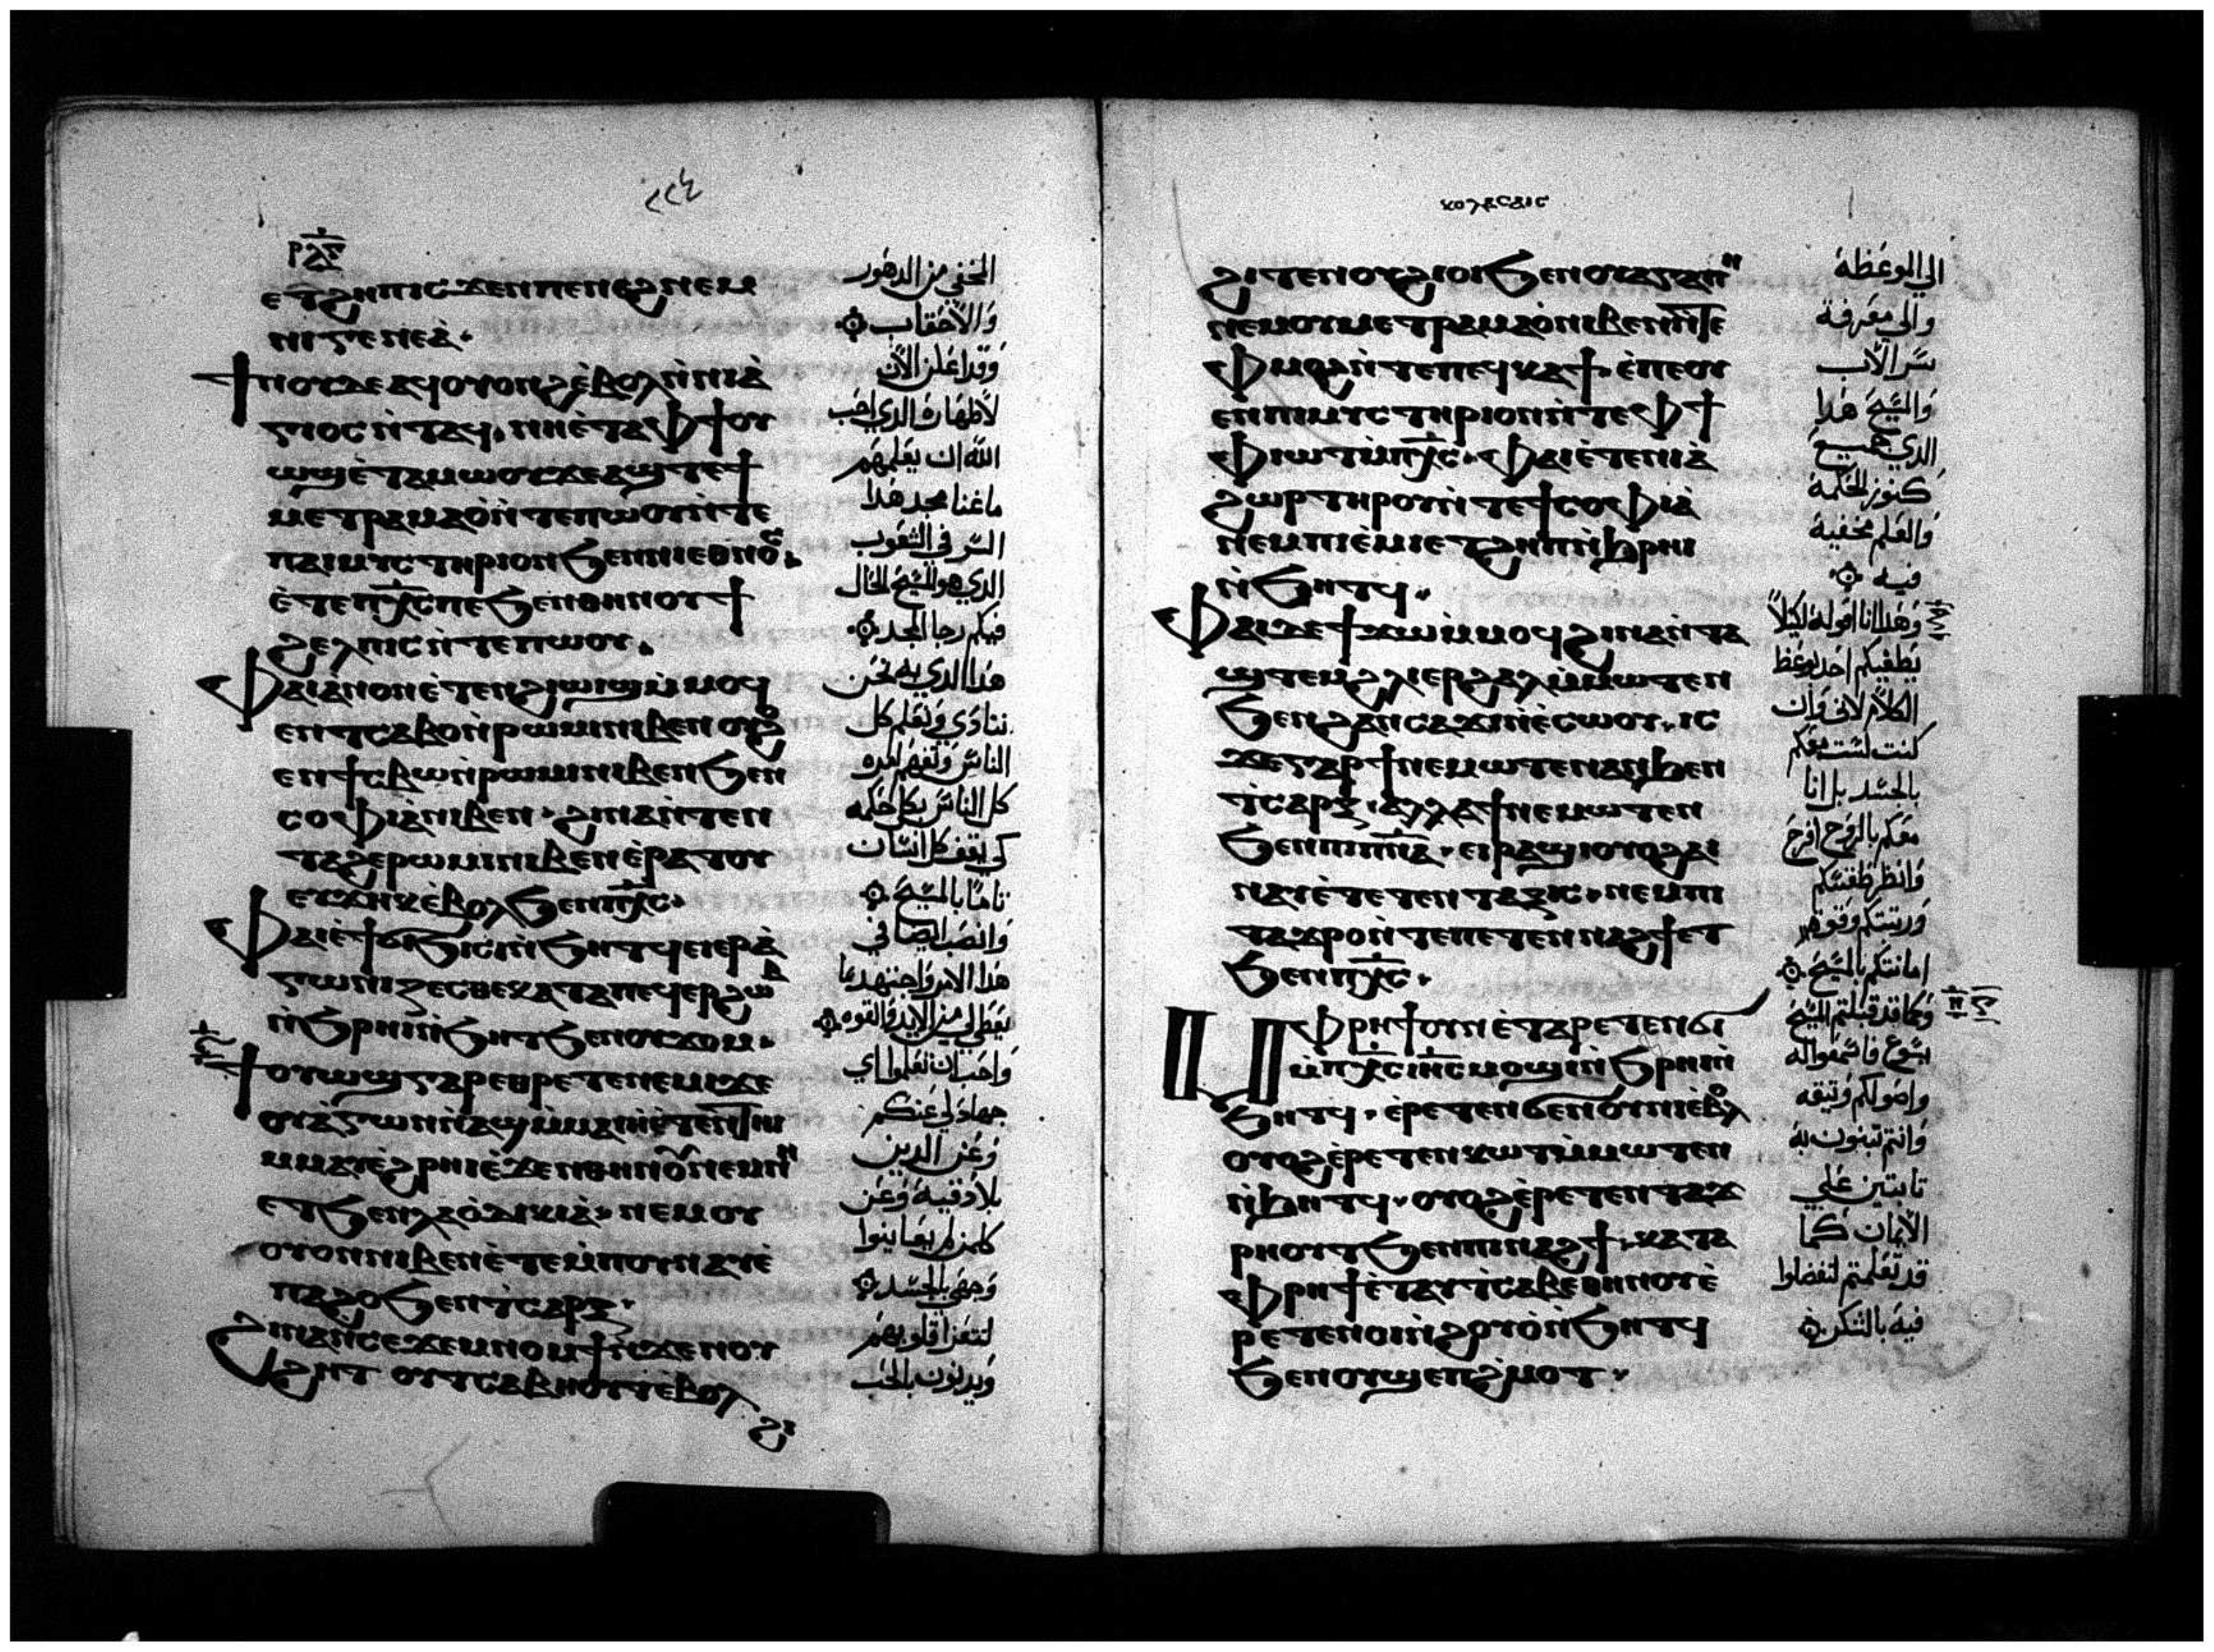 ⲣⲗⲋ
ⲉⲧϩⲏⲡ ⲓⲥϫⲉⲛ ⲡⲉⲛⲉϩ ⲛⲉⲙ
ⲛⲓⲅⲉⲛⲉⲁ̀.
ϯⲛⲟⲩ ⲇⲉ ⲁϥⲟⲩⲟⲛϩ ⲉ̀ⲃⲟⲗ ⲛ̀ⲛⲓⲁ̀
ⲅⲓⲟⲥ ⲛ̀ⲧⲁϥ. ⲛⲏ ⲉ̀ⲧⲁ ⲫϯ ⲟⲩ
ⲱϣ ⲉ̀ⲧⲁⲙⲱⲟⲩ ϫⲉ ⲁϣ ⲧⲉ ϯ
ⲙⲉⲧⲣⲁⲙⲁⲟ̀ ⲛ̀ⲧⲉ ⲡⲱⲟⲩ ⲛ̀ⲧⲉ
ⲡⲁⲓⲙⲩⲥⲧⲏⲣⲓⲟⲛ ϧⲉⲛ ⲛⲓⲉⲑⲛⲟⲥ.
ⲉ̀ⲧⲉ ⲡⲭ̅ⲥ̅ ⲡⲉ ϧⲉⲛ ⲑⲏⲛⲟⲩ ϯ
ϩⲉⲗⲡⲓⲥ ⲛ̀ⲧⲉ ⲡⲱⲟⲩ.
ⲫⲁⲓ ⲁ̀ⲛⲟⲛ ⲉ̀ⲧⲉⲛϩⲓⲱⲓϣ ⲙ̀ⲙⲟϥ
ⲉⲛⲧⲥⲁⲃⲟ ⲛ̀ⲣⲱⲙⲓ ⲛⲓⲃⲉⲛ ⲟⲩⲟϩ
ⲉⲛϯⲥⲃⲱ ⲛ̀ⲣⲱⲙⲓ ⲛⲓⲃⲉⲛ ϧⲉⲛ
ⲥⲟⲫⲓⲁ̀ ⲛⲓⲃⲉⲛ. ϩⲓⲛⲁ ⲛ̀ⲧⲉⲛ
ⲧⲁϩⲉ ⲣⲱⲙⲓ ⲛⲓⲃⲉⲛ ⲉ̀ⲣⲁⲧⲟⲩ
ⲉⲩϫⲏⲕ ⲉ̀ⲃⲟⲗ ϧⲉⲛ ⲡⲭ̅ⲥ̅.
ⲫⲁⲓ ⲉ̀ϯϭⲓϧⲓⲥⲓ ⲛ̀ϧⲏⲧϥ ⲉⲓⲉⲣⲁ̀
ⲅⲱⲛⲓⲍⲉⲥⲑⲉ ⲕⲁⲧⲁ ⲡⲉϥⲉⲣϩⲱⲃ
ⲛ̀ϧⲣⲏⲓ ⲛ̀ϧⲏⲧ ϧⲉⲛ ⲟⲩϫⲟⲙ.
ϯⲟⲩⲱϣ ⲅⲁⲣ ⲉⲑⲣⲉⲧⲉⲛⲉⲙⲓ ϫⲉ
ⲟⲩⲁ̀ⲅⲱⲛ ⲛ̀ⲁϣ ⲙ̀ⲙⲁⲓⲏ ⲉ̀ⲧⲉⲛⲧⲏⲓ
ⲙⲙⲁⲩ ⲉ̀ϩⲣⲏⲓ ⲉ̀ϫⲉⲛ ⲑⲏⲛⲟⲩ ⲛⲉⲙ ⲛⲏ
ⲉⲧϧⲉⲛ ⲗⲁⲟ̀ⲇⲓⲕⲓⲁ̀. ⲛⲉⲙ ⲟⲩ
ⲟⲩⲟⲛ ⲛⲓⲃⲉⲛ ⲉ̀ⲧⲉ ⲙ̀ⲡⲟⲩⲛⲁⲩ ⲉ̀
ⲡⲁϩⲟ ϧⲉⲛ ⲧ̀ⲥⲁⲣⲝ.
ϩⲓⲛⲁ ⲛ̀ⲥⲉϫⲉⲙⲛⲟⲙϯ ⲛ̀ϫⲉ ⲛⲟⲩ
ϩⲏⲧ ⲟⲩⲧⲥⲁⲃⲏⲟⲩⲧ ⲉ̀ⲃⲟⲗ
ϩⲓ
المخفي من الدهور
والاحقاب
وقد اعلن الان
لاطهاره الدي احب
الله ان يعلمهم
ما غنا مجد هدا
السر في الشعوب
الدي هو المسيح الحال
فيكم رجا المجد
هدا الدي به نحن
ننادي ونعلم كل
الناس
كل الناس بكل حكمه
كي نقف كل انسان
تاما بالمسيح
وانصب ايضا في
هدا الامر واجتهد
واحب ان تعلموا اي
جهاد لي عنكم
وعن الدين
بلادقيه وعن
كلمن لم يعاينوا
وجهي بالجسد
لتتعزا قلوبهم
ⲕⲟⲗⲁⲥⲁⲓⲥ
ϩⲓⲧⲉⲛ ⲟⲩϩⲓⲟⲓ ϧⲉⲛ ⲟⲩⲁⲅⲁⲡⲏ
ⲛⲉⲙ ⲟⲩⲙⲉⲧⲣⲁⲙⲁⲟ̀ ⲛⲓⲃⲉⲛ ⲛ̀ⲧⲉ
ⲫⲙⲟϩ ⲛ̀ⲧⲉ ⲡⲉϥⲕⲁϯ. ⲉ̀ⲡⲥⲟⲩ
ⲉⲛ ⲡⲓⲙⲩⲥⲧⲏⲣⲓⲟⲛ ⲛ̀ⲧⲉ ⲫϯ
ⲫⲓⲱⲧ ⲙ̀ⲡⲭ̅ⲥ̅. ⲫⲁⲓ ⲉ̀ⲧⲉ ⲛⲓⲁ̀
ϩⲱⲣ ⲧⲏⲣⲟⲩ ⲛ̀ⲧⲉ ϯⲥⲟⲫⲓⲁ̀
ⲛⲉⲙ ⲡⲓⲉ̀ⲙⲓ ⲉⲧϩⲏⲡ ⲛ̀ϧⲣⲏⲓ
ⲛ̀ϧⲏⲧϥ.
ⲫⲁⲓ ⲇⲉ ϯϫⲱ ⲙ̀ⲙⲟϥ ϩⲓⲛⲁ ⲛ̀ⲧⲁ
ϣⲧⲉⲙ ϩⲗⲓ ⲉⲣϩⲁⲗ ⲙ̀ⲙⲱⲧⲉⲛ
ϧⲉⲛ ϩⲁⲛⲥⲁϫⲓ ⲛ̀ⲉⲥⲱⲟⲩ. ⲓⲥ
ϫⲉ ⲅⲁⲣ ϯⲛⲉⲙⲱⲧⲉⲛ ⲁⲛ ϧⲉⲛ
ⲧ̀ⲥⲁⲣⲝ. ⲁⲗⲗⲁ ϯⲛⲉⲙⲱⲧⲉⲛ
ϧⲉⲛ ⲡⲓⲡ̅ⲛ̅ⲁ̅. ⲉⲓⲣⲁϣⲓ ⲟⲩⲟϩ ⲁⲓ
ⲛⲁⲩ ⲉ̀ⲧⲉⲧⲉⲛⲧⲁⲝⲓⲥ. ⲛⲉⲙ ⲡⲓ
ⲧⲁϫⲣⲟ ⲛ̀ⲧⲉ ⲡⲉⲧⲉⲛⲛⲁϩϯ ⲉⲧ
ϧⲉⲛ ⲡⲭ̅ⲥ̅.
ⲙⲫⲣⲏϯ ⲟⲩⲛ ⲉ̀ⲧⲁⲣⲉⲧⲉⲛϭⲓ
ⲙ̀ⲡⲭ̅ⲥ̅ ⲓⲏ̅ⲥ̅ ⲙⲟϣⲓ ⲛ̀ϧⲣⲏⲓ ⲛ̀
ϧⲏⲧϥ. ⲉ̀ⲣⲉⲧⲉⲛϭⲉⲛⲟⲩⲛⲓ ⲉ̀ⲃⲟⲗ
ⲟⲩⲟϩ ⲉ̀ⲣⲉⲧⲉⲛⲕⲱⲧ ⲙ̀ⲙⲱⲧⲉⲛ
ⲛ̀ϧⲏⲧϥ. ⲟⲩⲟϩ ⲉ̀ⲣⲉⲧⲉⲛⲧⲁϫ
ⲣⲏⲟⲩⲧ ϧⲉⲛ ⲡⲓⲛⲁϩϯ. ⲕⲁⲧⲁ
ⲫⲣⲏϯ ⲉ̀ⲧⲁⲩⲧ̀ⲥⲁⲃⲉ ⲑⲏⲛⲟⲩ ⲉ̀
ⲣⲉⲧⲉⲛⲟⲓ ⲛ̀ϩⲟⲩⲟ̀ ⲛ̀ϧⲏⲧϥ
ϧⲉⲛ ⲟⲩϣⲉⲡϩ̀ⲙⲟⲧ.
الي الموعظة
والي معرفة
سر الاب
والمسيح هدا
الدي جميع
كنوز الحكمة
والعلم مخفية
فيه
وهدا انا اقوله ليلا
يطغيكم احد بوعظ
الكلام لاني وان
كنت لست معكم
بالجسد بل انا
معكم بالروح افرح
وانظر طقسكم
ورتبتكم وقوة
امانتكم بالمسيح
وكما قد قبلتم المسيح
يسوع فاسعوا له
واصولكم وتيقه
وانتم تبنون به
تابتين علي
الايمان كما
قد تعلمتم لتفضلوا
فيه بالشكر